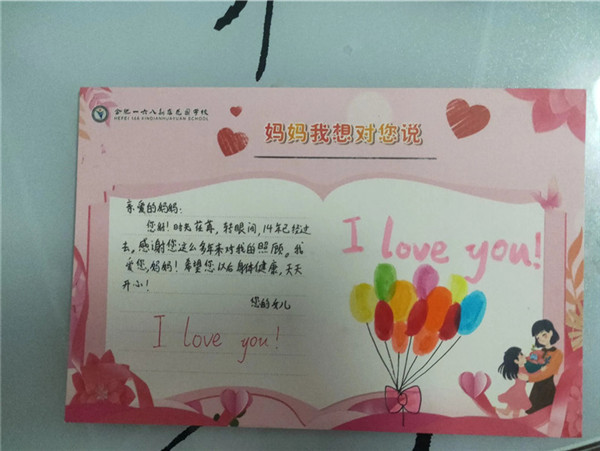 合肥一六八新店花园学校
HEFEI 168 XINDIANHUAYUAN SCHOOL
妈妈我想对您说
亲爱的妈妈:
您好!时光荏苒,转眼间,14年已经过
去,感谢您这么多年来对我的照顾。我
爱您,妈妈!希望您以后身体健康,天天
开心!
您的女儿
I love you!
I love you!